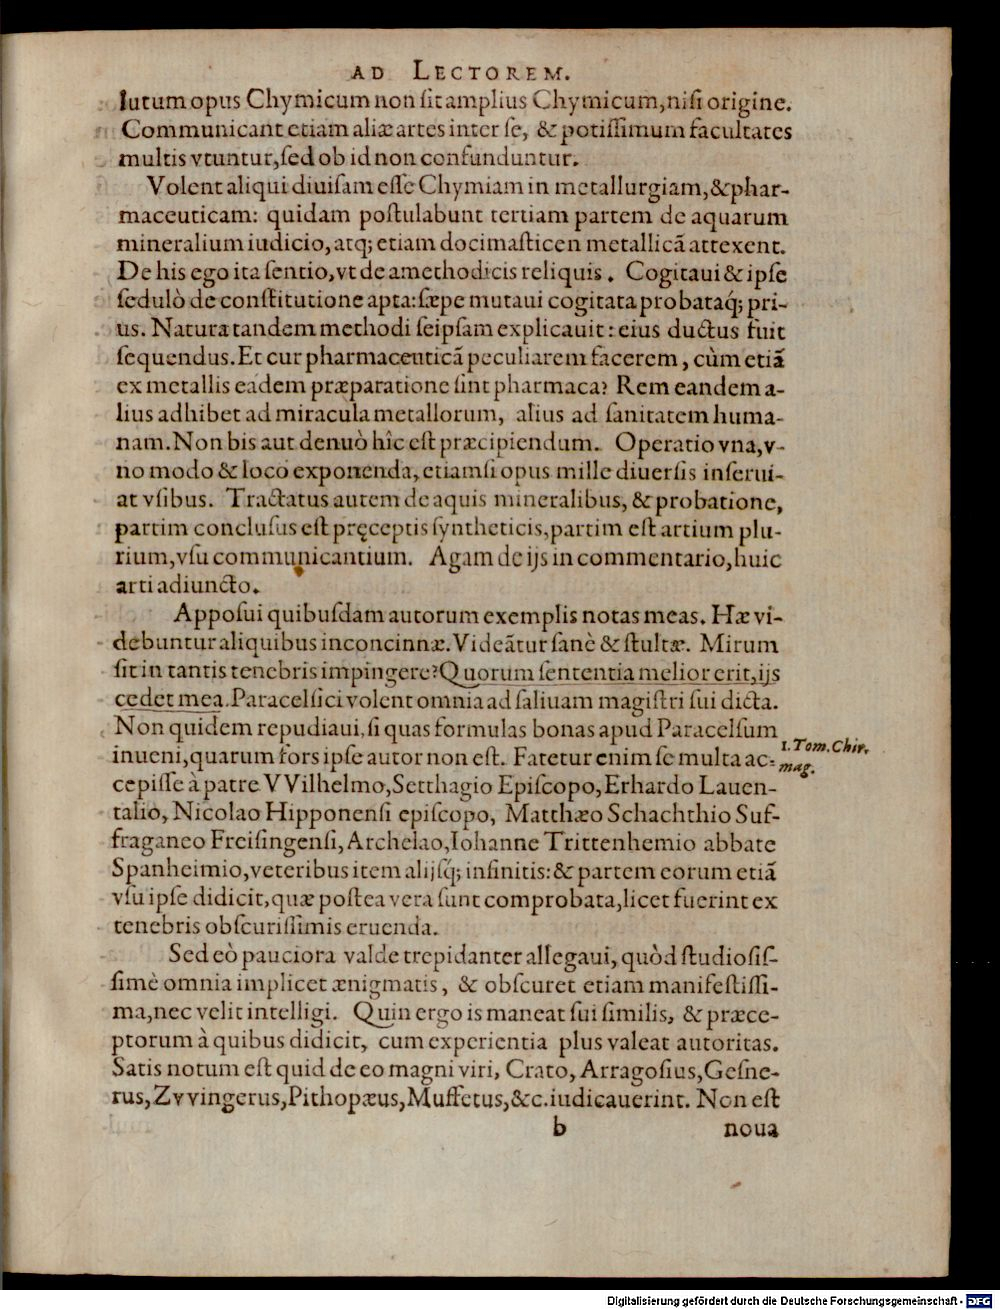 AD LECTOREM.
lutum opus Chymicum non sit amplius Chymicum, nisi origine.
Communicant etiam aliæ artes inter se, & potissimum facultates
multis vtuntur, sed ob id non confunduntur.
Volent aliqui diuisam esse Chymiam in metallurgiam, & phar-
maceuticam: quidam postulabunt tertiam partem de aquarum
mineralium iudicio, atq; etiam docimasticen metallicã attexent.
De his ego ita sentio, vt de amethodicis reliquis. Cogitaui & ipse
sedulò de constitutione apta: sæpe mutaui cogitata probataq́; pri-
us. Natura tandem methodi seipsam explicauit: eius ductus fuit
sequendus. Et cur pharmaceuticã peculiarem facerem, cùm etiã
ex metallis eadem præparatione sint pharmaca? Rem eandem a-
lius adhibet ad miracula metallorum, alius ad sanitatem huma-
nam. Non bis aut denuò hîc est præcipiendum. Operatio vna, v-
no modo & loco exponenda, etiamsi opus mille diuersis inserui-
at vsibus. Tractatus autem de aquis mineralibus, & probatione,
partim conclusus est pręceptis syntheticis, partim est artium plu-
rium, vsu communicantium. Agam de ijs in commentario, huic
arti adiuncto.
Apposui quibusdam autorum exemplis notas meas. Hæ vi-
debuntur aliquibus inconcinnæ. Videãtur sanè & stultæ. Mirum
sit in tantis tenebris impingere? Quorum sententia melior erit, ijs
cedet mea. Paracelsici volent omnia ad saliuam magistri sui dicta.
Non quidem repudiaui, si quas formulas bonas apud Paracelsum
inueni, quarum fors ipse autor non est. Fatetur enim se multa ac-
1. Tom. Chir.
mag.
cepisse à patre VVilhelmo, Setthagio Episcopo, Erhardo Lauen-
talio, Nicolao Hipponensi episcopo, Matthæo Schachthio Suf-
fraganeo Freisingensi, Archelao, Iohanne Trittenhemio abbate
Spanheimio, veteribus item alijsq́; infinitis: & partem eorum etiã
vsu ipse didicit, quæ postea vera sunt comprobata, licet fuerint ex
tenebris obscurissimis eruenda.
Sed eò pauciora valde trepidanter allegaui, quòd studiosis-
simè omnia implicet ænigmatis, & obscuret etiam manifestissi-
ma, nec velit intelligi. Quin ergo is maneat sui similis, & præce-
ptorum à quibus didicit, cum experientia plus valeat autoritas.
Satis notum est quid de eo magni viri, Crato, Arragosius, Gesne-
rus, Zvvingerus, Pithopæus, Muffetus, &c. iudicauerint. Non est
b noua
Digitalisierung gefördert durch die Deutsche Forschungsgemeinschaft - DFG